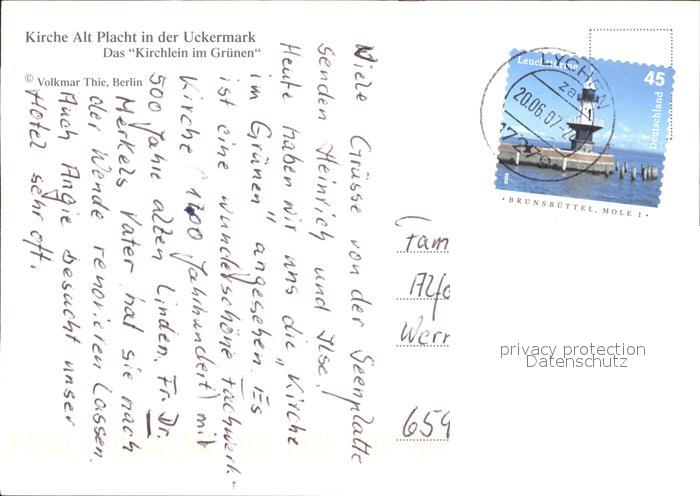 Kirche Alt Placht in der Uckermark
Das "Kirchlein im Grünen"
© Volkmar Thie, Berlin
Viele Grüsse von der Seenplatte
senden Heinrich und Ilse.
Heute haben wir uns die "Kirche
im Grünen" angesehen. Es
ist eine wunderschöne Fachwerk-
Kirche (1700 Jahrhundert) mit
500 Jahre alten Linden. Fr. Dr.
Merkels Vater hat sie nach
der Wende renovieren lassen.
Auch Angie besucht unser
Hotel sehr oft.
Leuchttürme
45
Deutschland
BRUNSBÜTTEL, MOLE 1
LYCHEN
20.06.07
17279
Fam
Alfo
Werr
659
privacy protection
Datenschutz